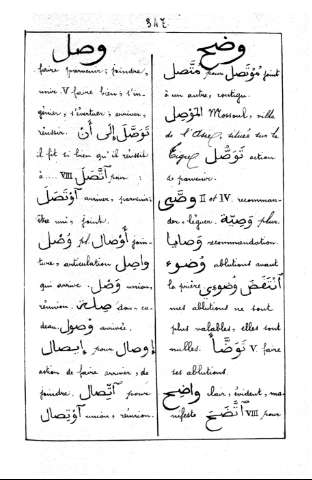 وصل
faire parvenir; joindre,
unir. V faire bien; s'in-
génier, s'évertuer; arriver,
réussir. تَوَصَّلَ إِلَى أَن
il fit si bien qu'il réussit
à .... VIII اَتَّصَلَ pour :
اَوْتَصَلَ arriver, parvenir;
être uni, joint.
وُصْل pl. أَوْصَال join-
ture, articulation وَاصِل
qui arrive. وَصْل union,
réunion. صِلَة don, ca-
deau. وُصُول arrivée.
إِيصال pour إِوصال
action de faire arriver, de
joindre. اَتِّصال pour
اَوْتِصال union, réunion.
وضح
مُتَّصل pour مُوْتَصل joint
à un autre, contigu.
المَوْصِل Mossoul, ville
de l'Irac, située sur le
Tigre تَوَصُّل action
de parvenir.
وَصَّى II et IV. recomman-
der, léguer. وَصِيَّة plur.
وَصايا recommandation.
وُضُوء ablutions avant
la prière اَنْتَقَضَ وُضوءي
mes ablutions ne sont
plus valables, elles sont
nulles. تَوَضَّأَ V. faire
ses ablutions.
وَاضِح clair, évident, ma-
nifeste اَتَّضَحَ VIII pour